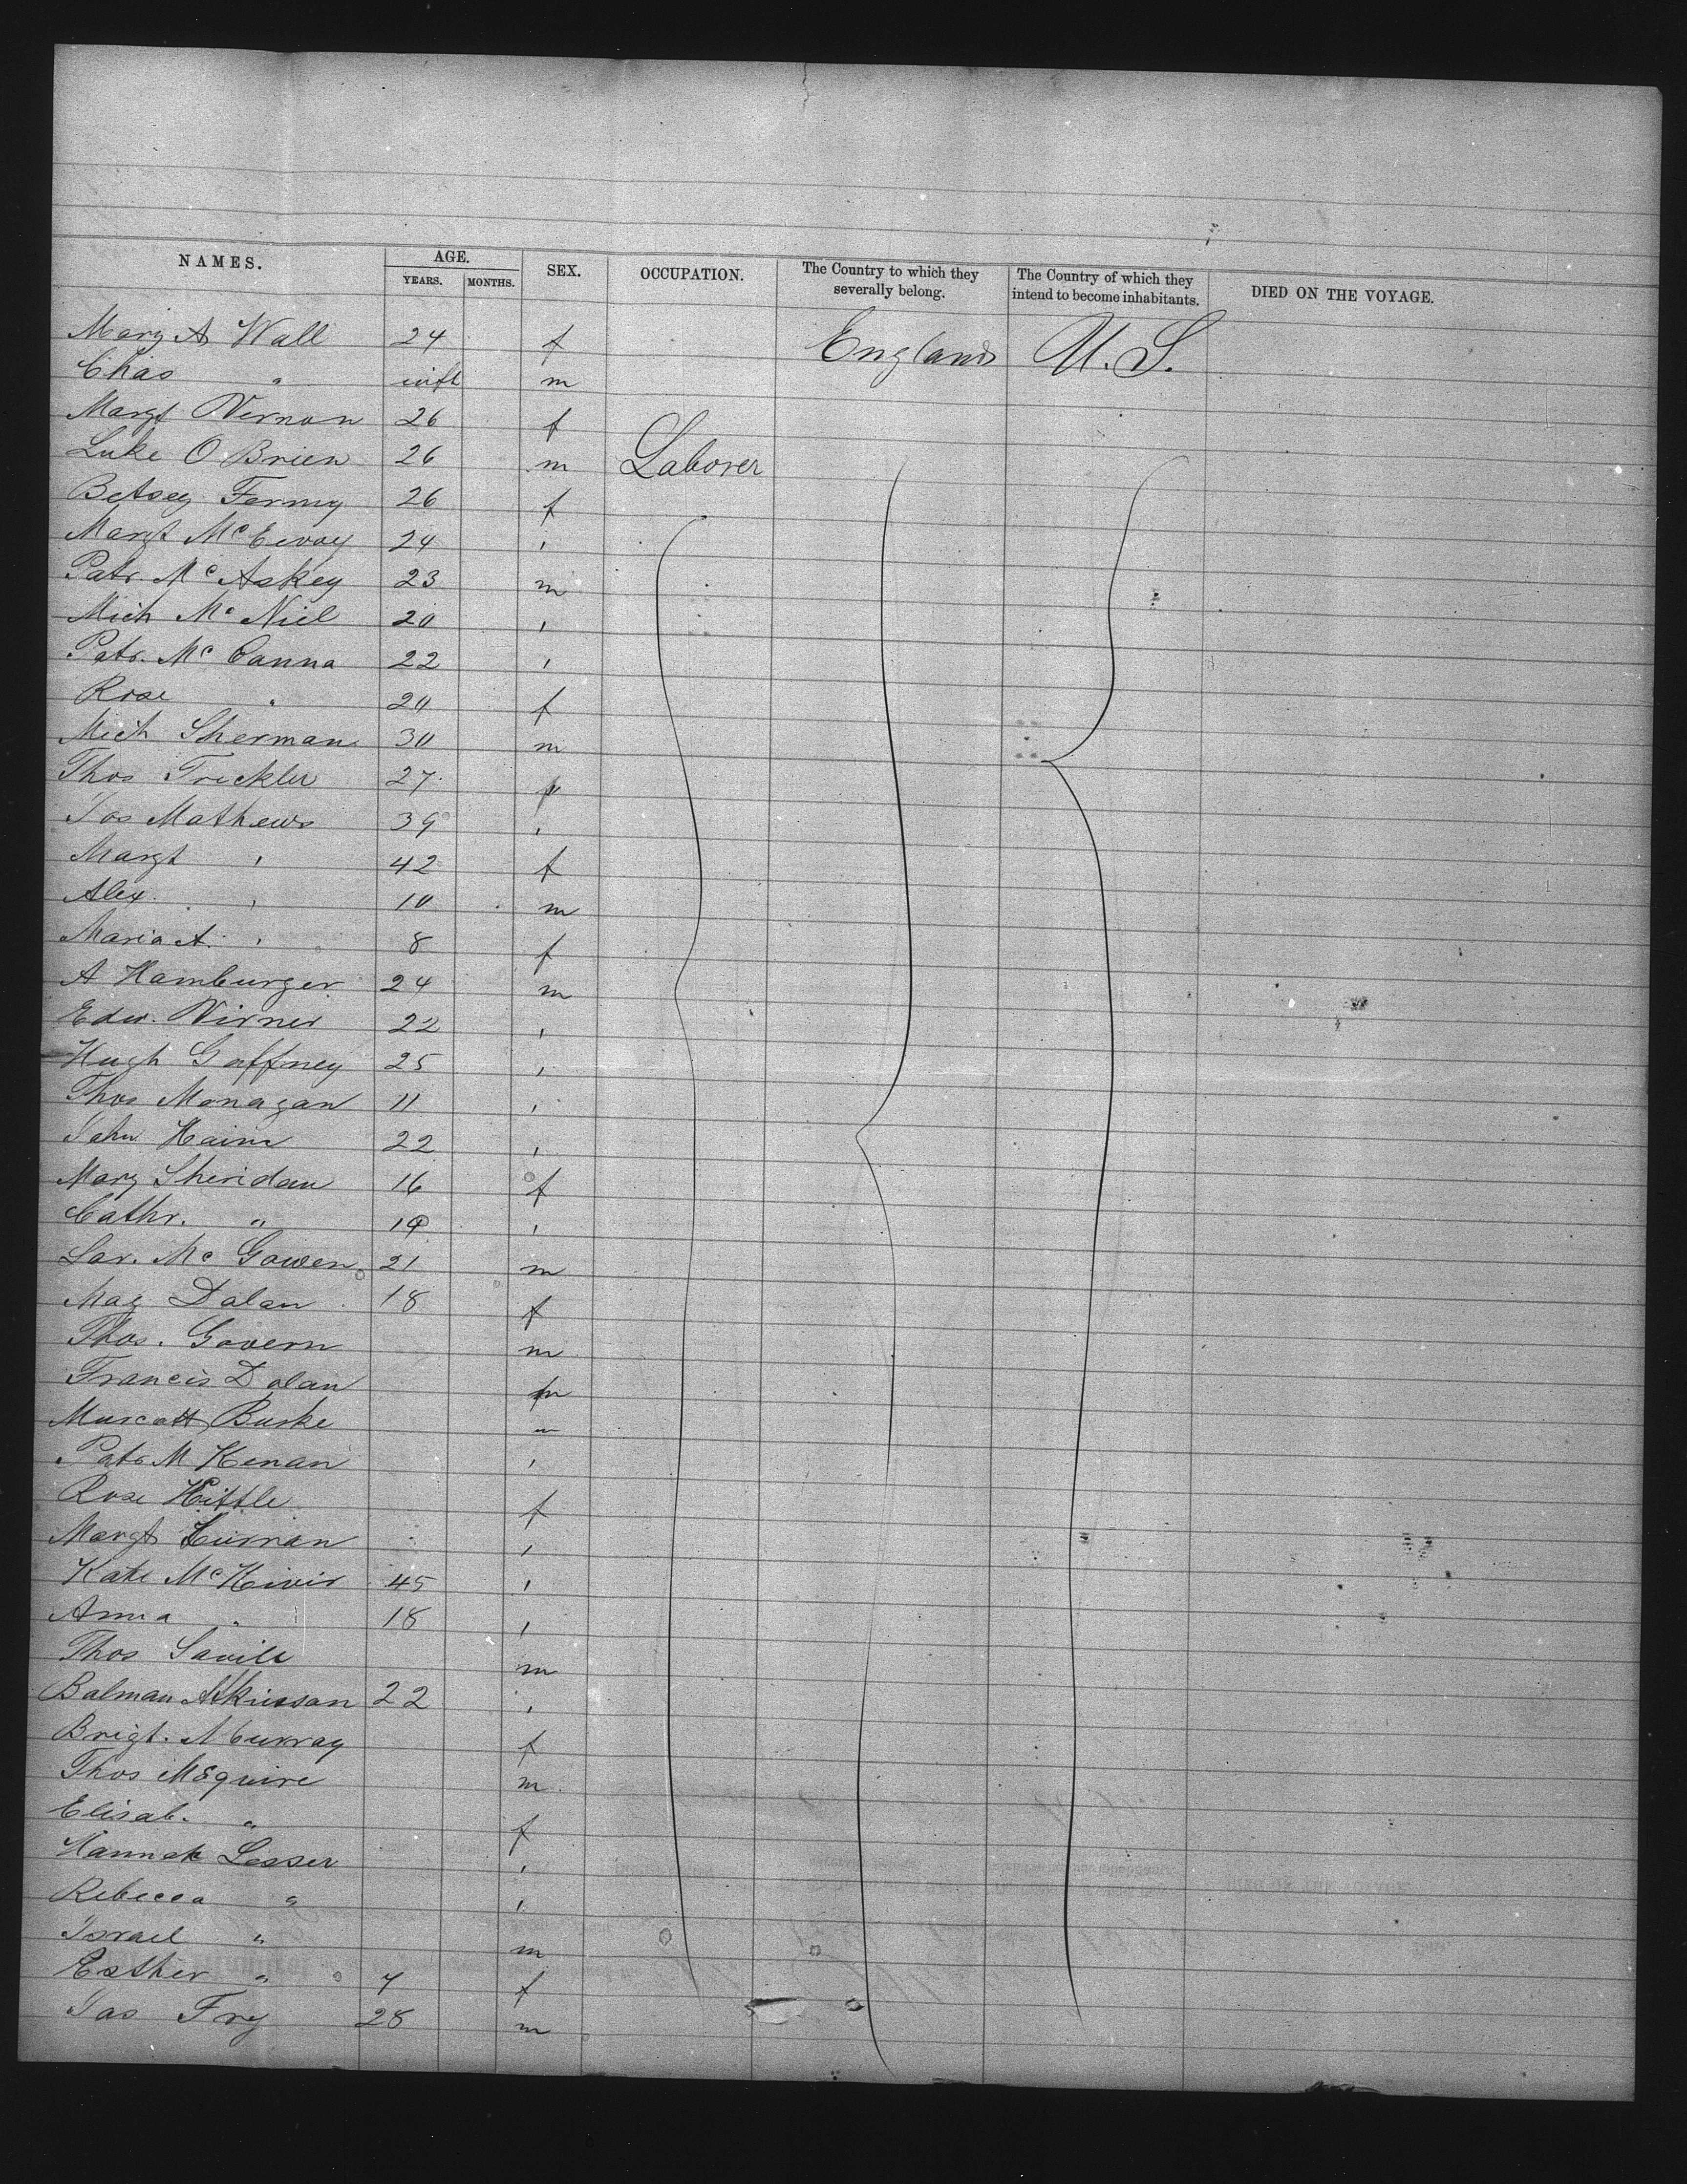 NAMES. AGE. SEX. OCCUPATION. The Country to which they severally belong. The Country of which they intend to become inhabitants. DIED ON THE VOYAGE.
YEARS. MONTHS.
Mary A Wall 24 f England U.S.
Chas " inft m
Margt Vernon 26 f
Luke O Brien 26 m Laborer
Betsey 26 f
Margt McEvoy 24 '
Patr. Mc Askey 23 m
Mich Mc Niel 20 '
Patr. Mc Canna 22 '
Rose " 20 f
Mich Sherman 30 m
Thos Trickler 27
Jas Mathews 39 '
Margt ' 42 f
Alex. ' 10 m
Maria A. ' 8 f
A Hamburger 24 m
Edw. 22 '
Hugh Gaffney 25 '
Thos Monagan 11 '
John 22 '
Mary Sheridan 16 f
Cathr. " '
Mc Gowen 21 m
Mag Dolan 18 f
Thos. Govern m
Francis Dolan m
Burke "
Patr M Kenan '
Rose f
Margt '
Kate Mc 45 '
Anna " 18 '
Thos Savill m
22 '
Brigt. f
Thos McGuire m
Elisab. " f
Hannah Lesser '
Rebecca " '
Israel " m
Esther " 7 f
Jas Fry 28 m